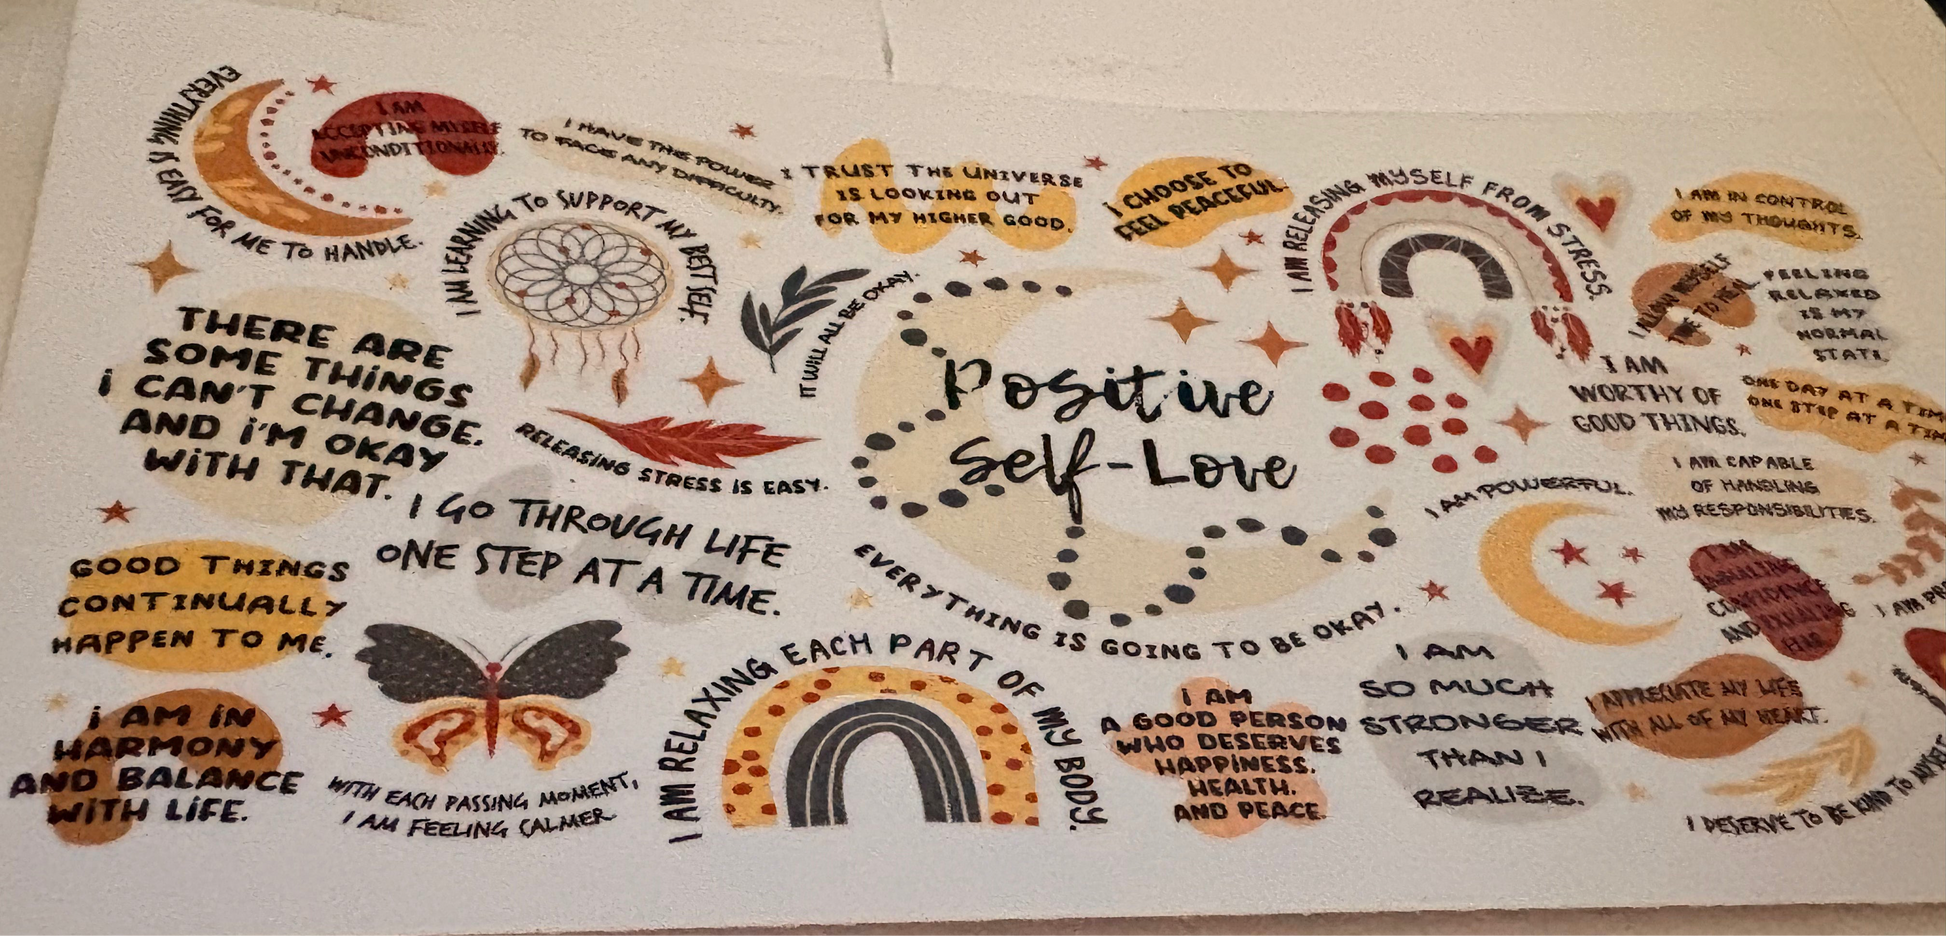 EVERYTHING IS EASY FOR ME TO HANDLE.
I AM
ACCEPTING MYSELF
UNCONDITIONALLY.
I HAVE THE POWER
TO FACE ANY DIFFICULTY.
I TRUST THE UNIVERSE
IS LOOKING OUT
FOR MY HIGHER GOOD.
I CHOOSE TO
FEEL PEACEFUL.
I AM RELEASING MYSELF FROM STRESS.
I AM IN CONTROL
OF MY THOUGHTS.
I AM LEARNING TO SUPPORT MY BEST SELF.
IT WILL ALL BE OKAY.
I ALLOW MYSELF
TIME TO HEAL
FEELING
RELAXED
IS MY
NORMAL
STATE.
THERE ARE
SOME THiNGS
i CAN'T CHANGE.
AND i'M OKAY
WiTH THAT.
RELEASING STRESS IS EASY.
Positive
Self-Love
I AM
WORTHY OF
GOOD THINGS.
ONE DAY AT A TIM
ONE STEP AT A TIM
I AM CAPABLE
OF HANDLING
MY RESPONSIBILITIES.
I GO THROUGH LIFE
ONE STEP AT A TIME.
I AM POWERFUL.
EVERYTHING IS GOING TO BE OKAY.
GOOD THINGS
CONTINUALLY
HAPPEN TO ME.
I AM
INHALING
CONFIDENCE
AND EXHALING
FEAR
I AM PR
i AM iN
HARMONY
AND BALANCE
WiTH LiFE.
WITH EACH PASSING MOMENT,
I AM FEELING CALMER
I AM RELAXING EACH PART OF MY BODY.
I AM
A GOOD PERSON
WHO DESERVES
HAPPINESS,
HEALTH,
AND PEACE.
I AM
SO MUCH
STRONGER
THAN I
REALIZE.
I APPRECIATE MY LIFE
WITH ALL OF MY HEART.
I DESERVE TO BE KIND TO MYSELF